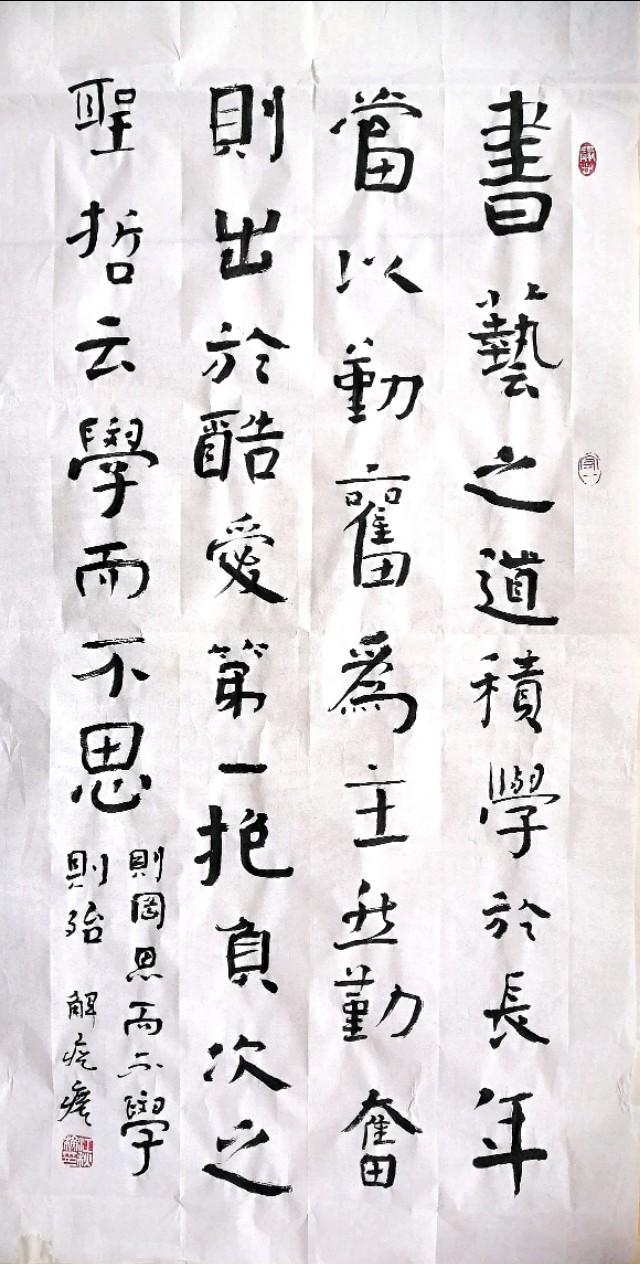 書藝之道積學於長年
當以勤奮為主然勤奮
則出於酷愛第一抱負次之
聖哲云學而不思
則罔思而不學
則殆 解疙瘩